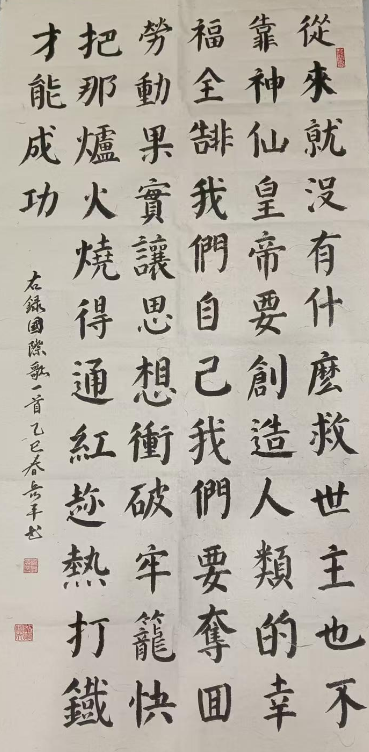 從來就没有什麽救世主也不
靠神仙皇帝要創造人類的幸
福全靠我們自己我們要奪囬
勞動果實讓思想衝破牢籠快
把那爐火燒得通紅趂熱打鐵
才能成功
右録國際歌一首乙巳春岳平书